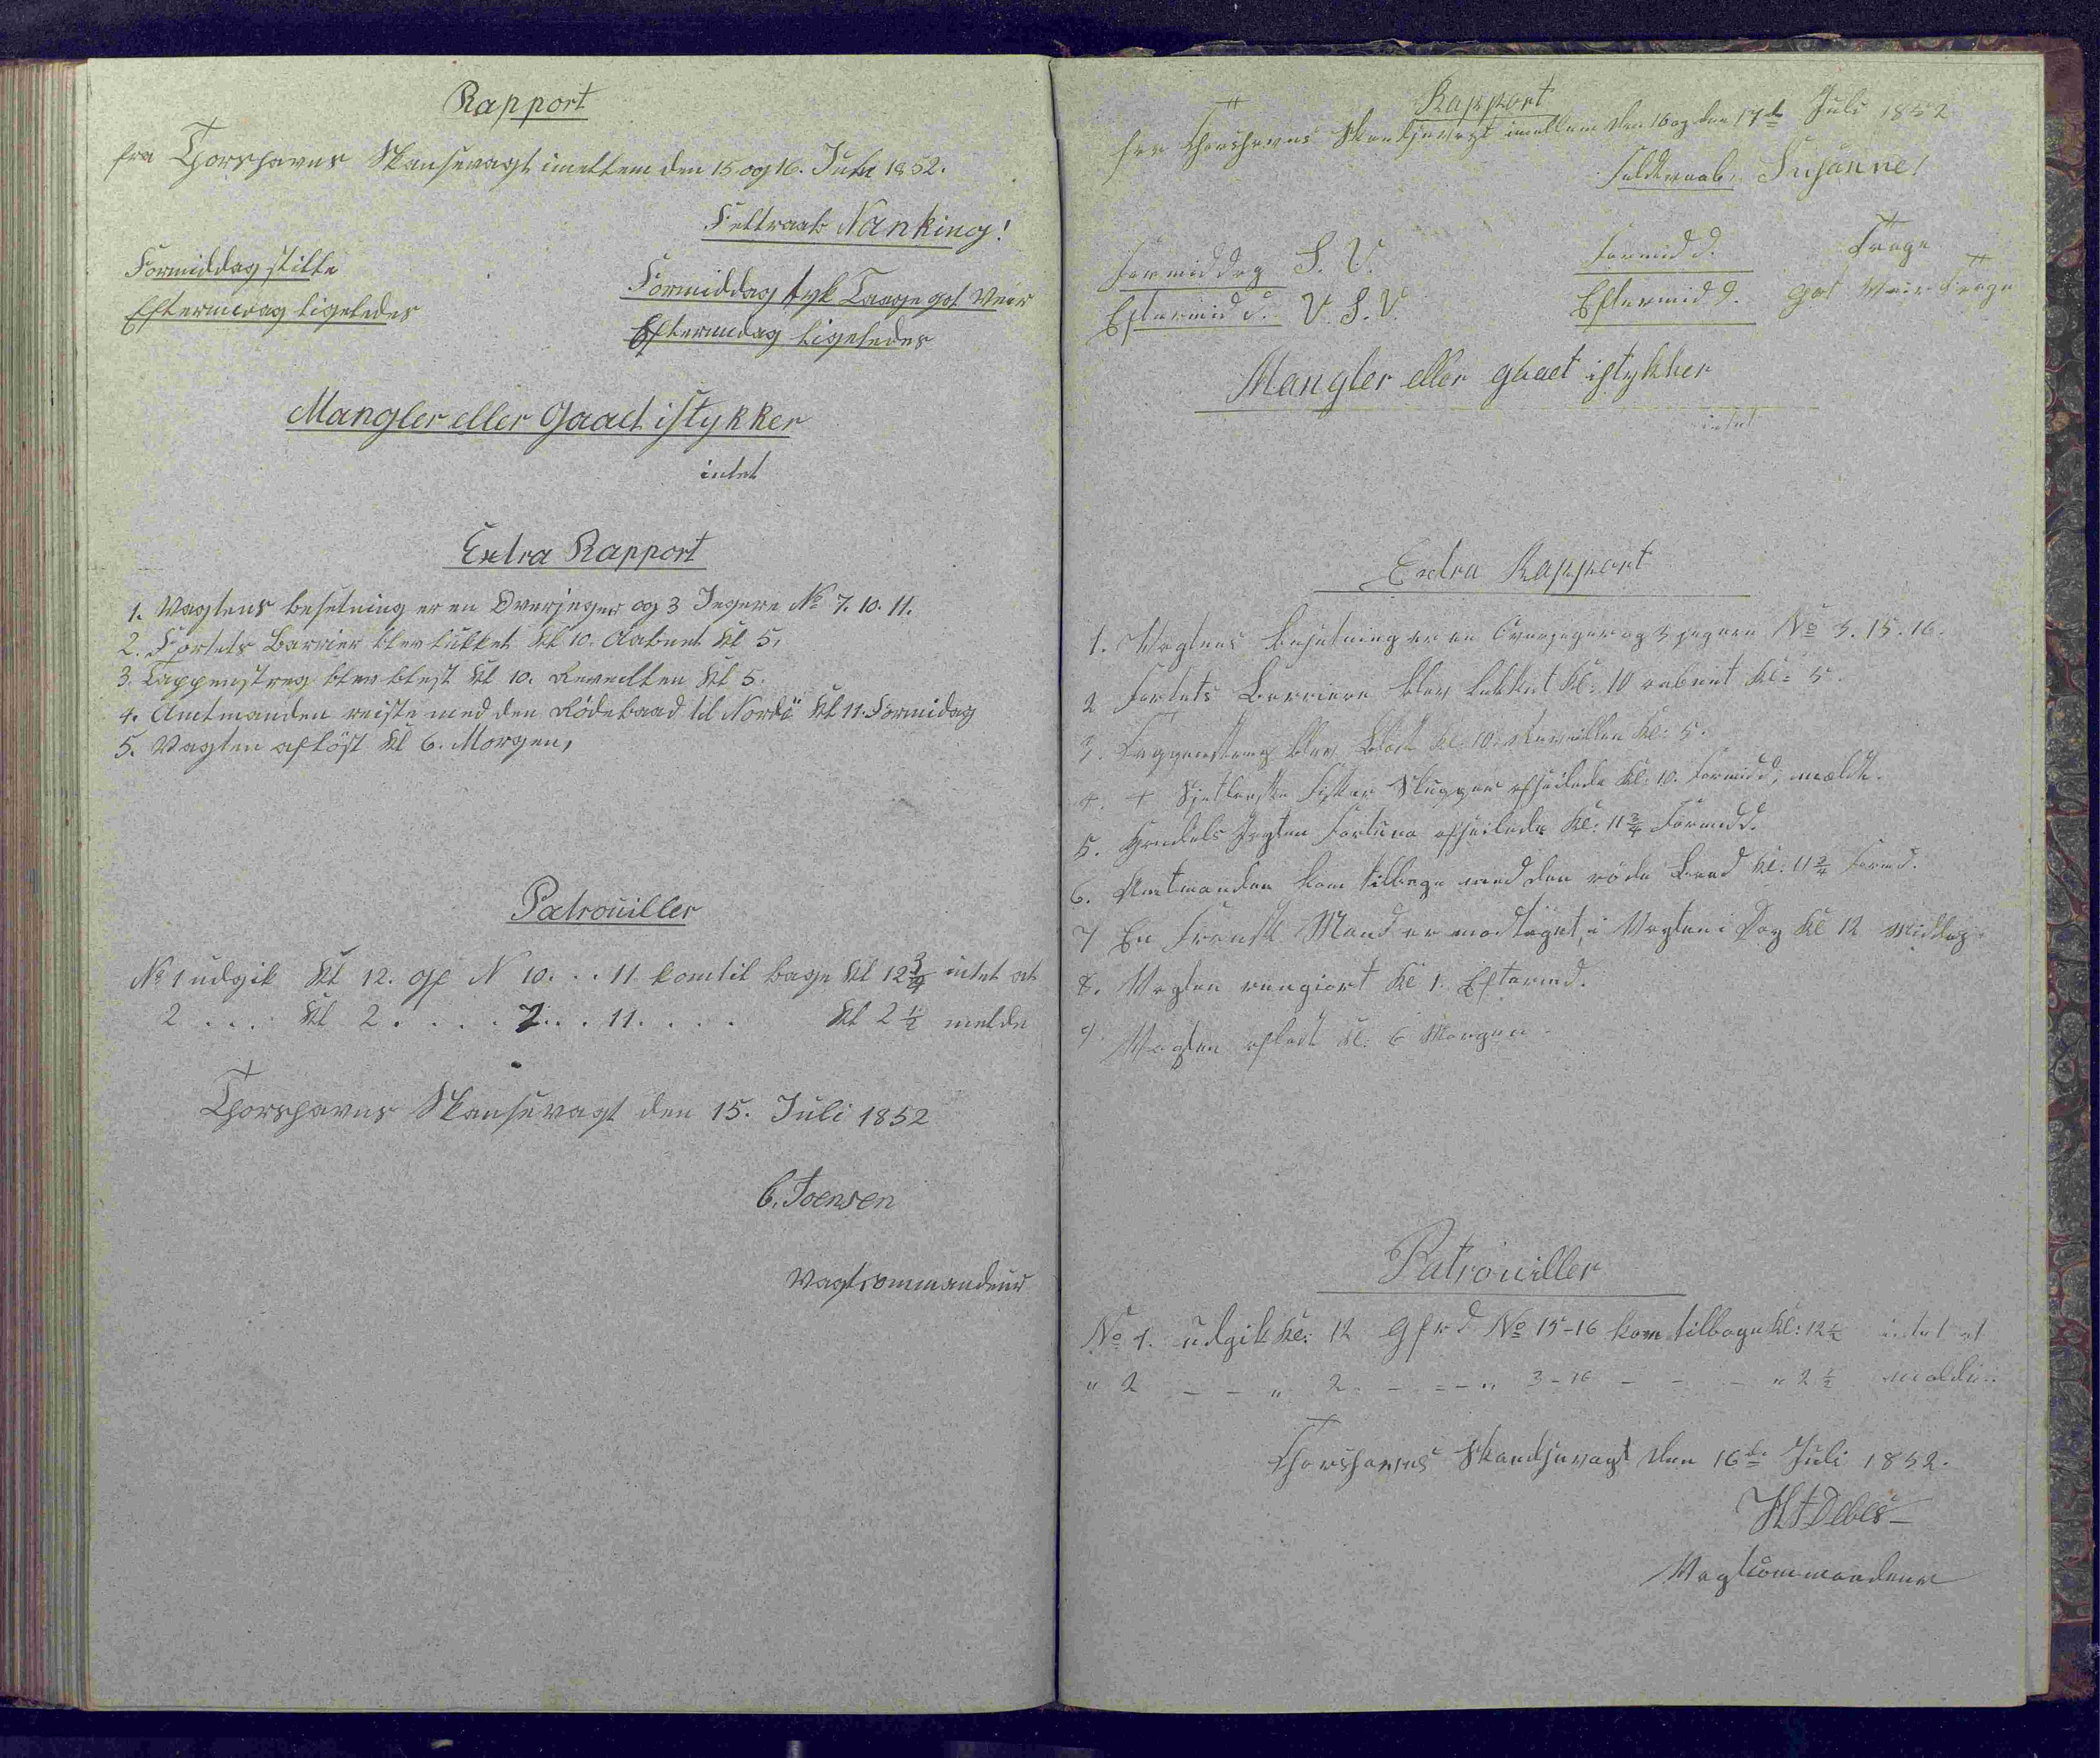 Rapport
fra Thorshavns Skansevagt imellem den 15 og 16. Juli 1852.
Feltraab Nanking!
Formiddag stille
Eftermidag ligeledes
Formiddag tyk Taage got Veir
Eftermidag ligeledes
Mangler eller Gaaet istykker
intet
Extra Rapport
1. Vagtens besetning er en Overjeger og 3 Jegere No 7. 10. 11.
2. Fortets Barrier blev lukket Kl 10. Aabnet Kl 5.
3. Tappenstreg blev blest Kl 10. Reveillen Kl 5.
4. Amtmanden reiste med den Rödebaad til Nordö Kl 11. Formidag
5. Vagten aflöst Kl 6. Morgen,
Patrouiller
No 1 udgik Kl 12. gf N 10. . . 11 kom til bage Kl 12 3/4 intet at
2 . . . Kl 2 . . . . 7. . . 11. . . . Kl 2 1/2 melde
Thorshavns Skansevagt den 15. Juli 1852
C. Joensen
Vagtcommandeur
Rapport
fra Thorshavns Skandsevagt imellem den 16 og den 17de Juli 1852
Feldtraab, Susanne!
Formiddag S. V.
Eftermidd. V. S. V.
Formidd. Taage
Eftermidd. got Veir Taage
Mangler eller gaaet istykker
intet
Extra Rapport
1. Vagtens Besetning er en Overjeger og 3 jegere No 3. 15. 16.
2 Fortets Barriere blev lukket Kl: 10 aabnet Kl: 5.
3. Tappenstreg blev blæst Kl: 10. Reveillen Kl: 5.
4. + Sjetlandske Fisker Slupper afseilede Kl: 10. Formidd,
5. Handels Jagten Fortuna afseilede Kl: 11 3/4 Formidd.
6. Amtmanden kom tilbage med den röde Baad Kl: 11 3/4 Formd.
7 En Fransk Mand er modtaget i Vagten i Dag Kl 12 Middag.
8. Vagten rengiort Kl 1. Eftermd.
9 Vagten aflöst Kl: 6 Morgen.
Patrouiller
No 1. udgik Kl: 12 Gfrd No 15-16 kom tilbage Kl: 12 1/2 intet at
" 2 - - " 2 - - - " 3-16 - - - " 2 1/2 melde.
Thorshavns Skandsevagt den 16de Juli 1852.
Debes
Vagtcommandeur